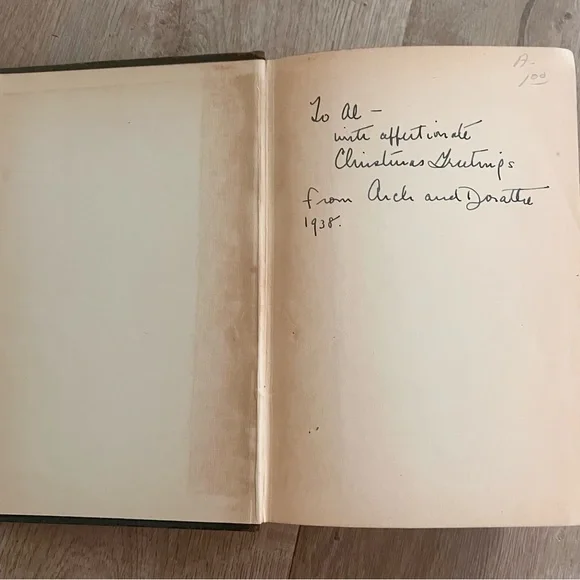 A-
1 00
To Al –
with affectionate
Christmas Greetings
from Arch and Dorathe
1938.